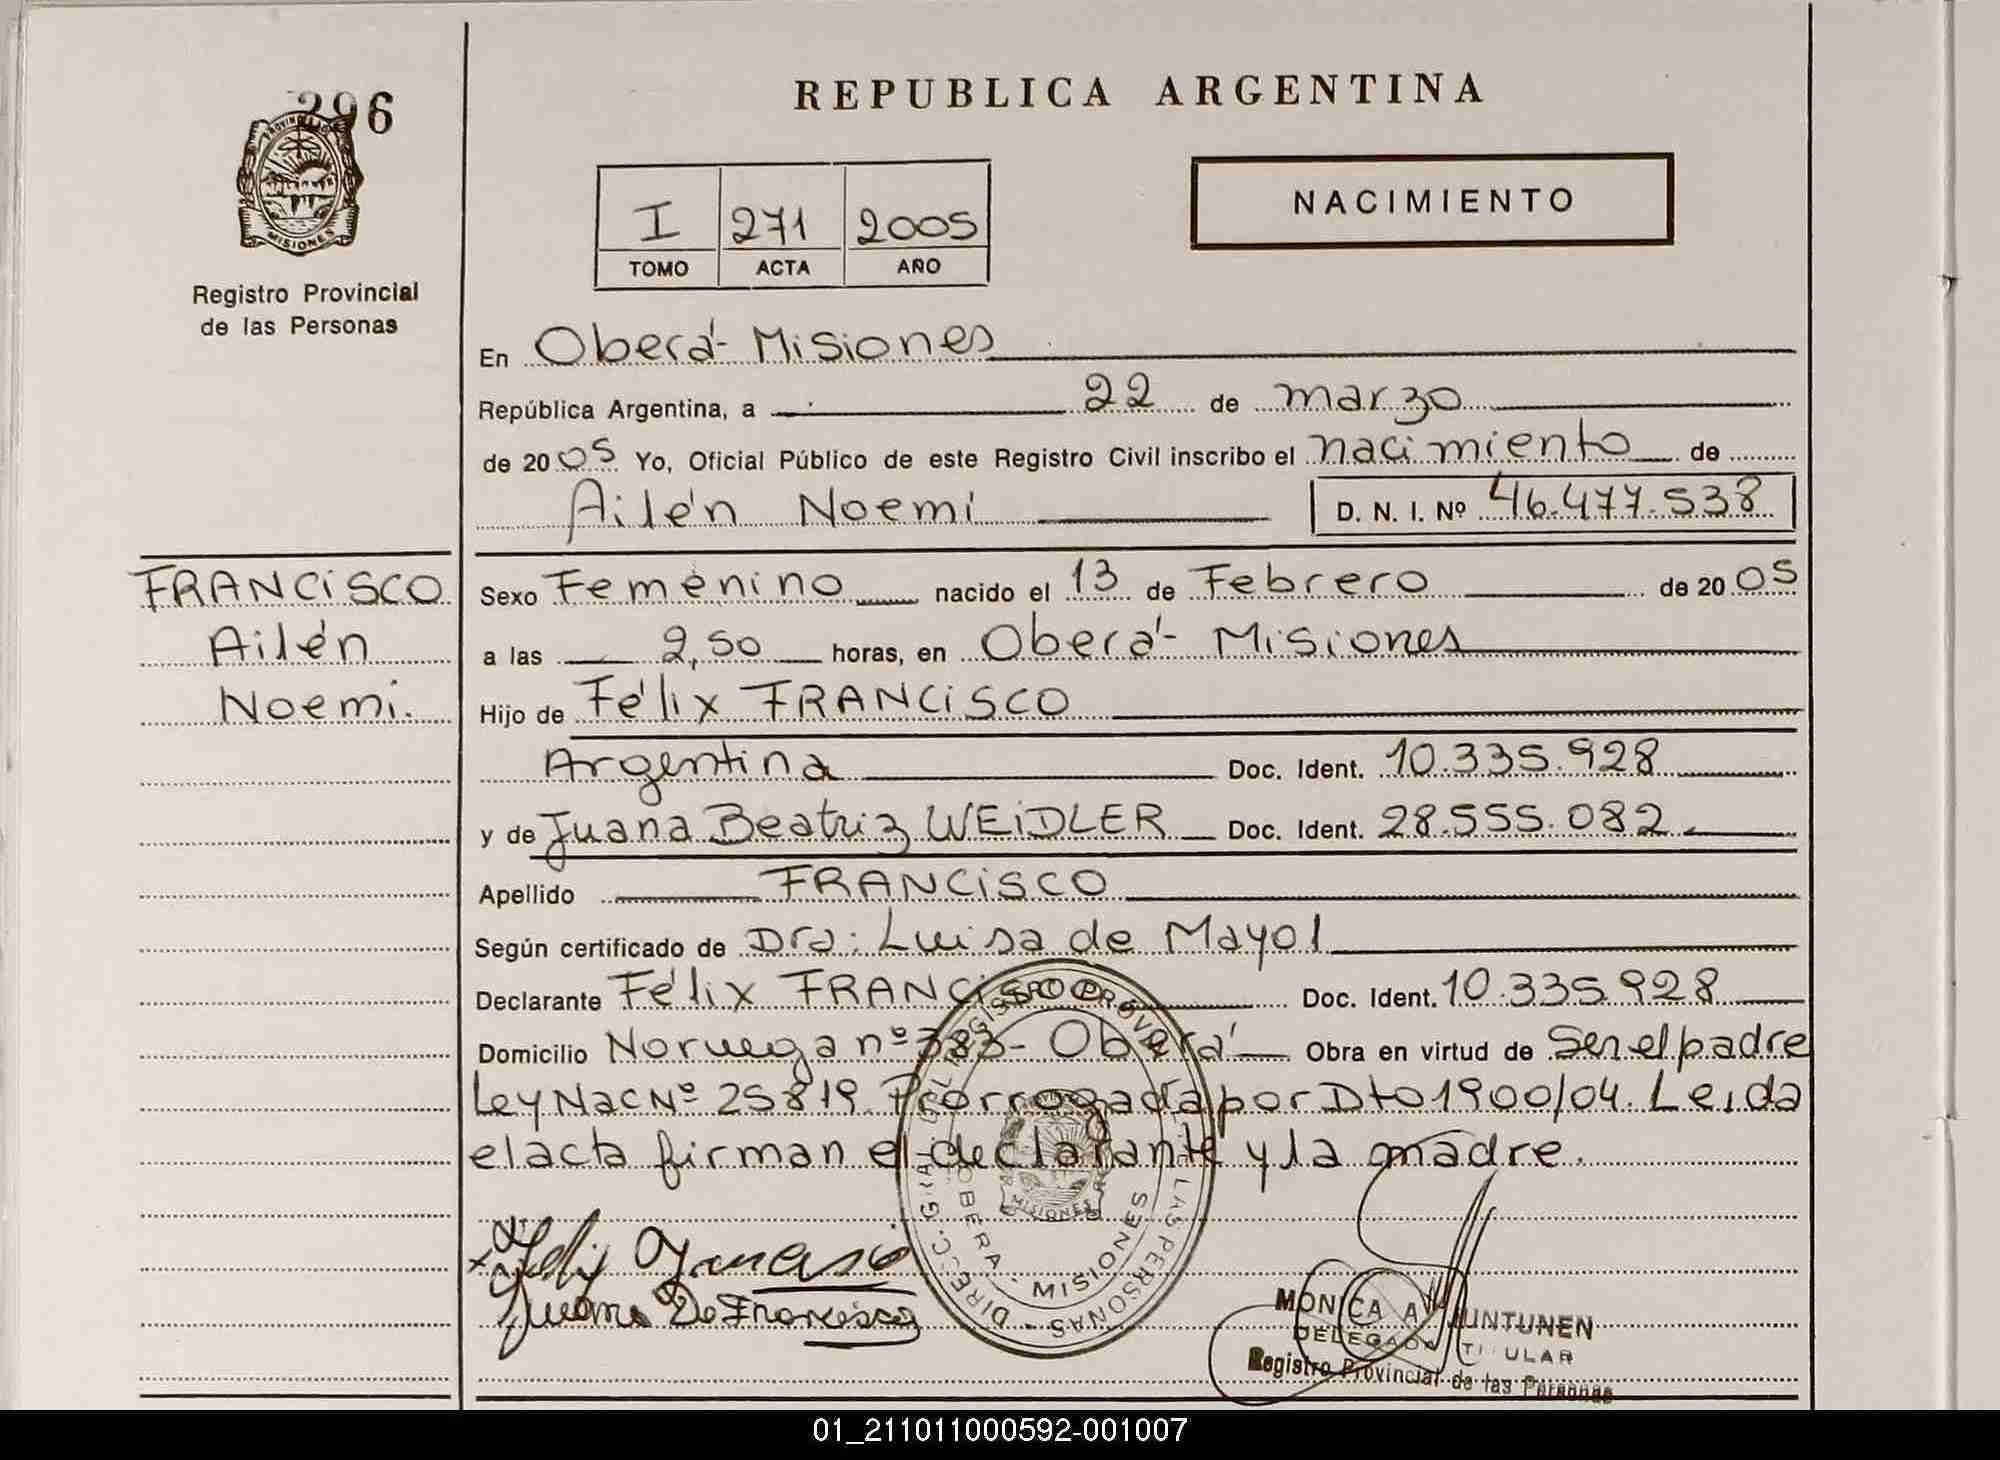 296
PROVINCIA DE
MISIONES
Registro Provincial
de las Personas
REPUBLICA ARGENTINA
I 271 2005
TOMO ACTA AÑO
NACIMIENTO
En Oberá - Misiones
República Argentina, a 22 de marzo
de 2005 Yo, Oficial Público de este Registro Civil inscribo el nacimiento de
Ailén Noemi D. N. I. Nº 46.477.538
FRANCISCO
Ailén
Noemi.
Sexo Femenino nacido el 13 de Febrero de 2005
a las 2,50 horas, en Oberá - Misiones
Hijo de Félix FRANCISCO
Argentina Doc. Ident. 10.335.928
y de Juana Beatriz WEIDLER Doc. Ident. 28.555.082
Apellido FRANCISCO
Según certificado de Dra: Luisa de Mayol
Declarante Félix FRANCISCO Doc. Ident. 10.335.928
Domicilio Noruega nº 383 - Oberá Obra en virtud de Ser el padre
Ley Nac Nº 25819 Prorrogada por Dto 1900/04. Leida
el acta firman el declarante y la madre.
DIRECC. GRAL. DEL REGISTRO PROV. DE LAS PERSONAS
OBERA - MISIONES
MISIONES
Juana De Francisco
MONICA A JUNTUNEN
DELEGADO TITULAR
Registro Provincial de las Personas
01_211011000592-001007